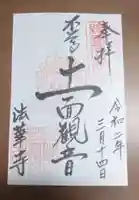 奉拝
令和二年
三月十四日
十一面觀音
法華寺